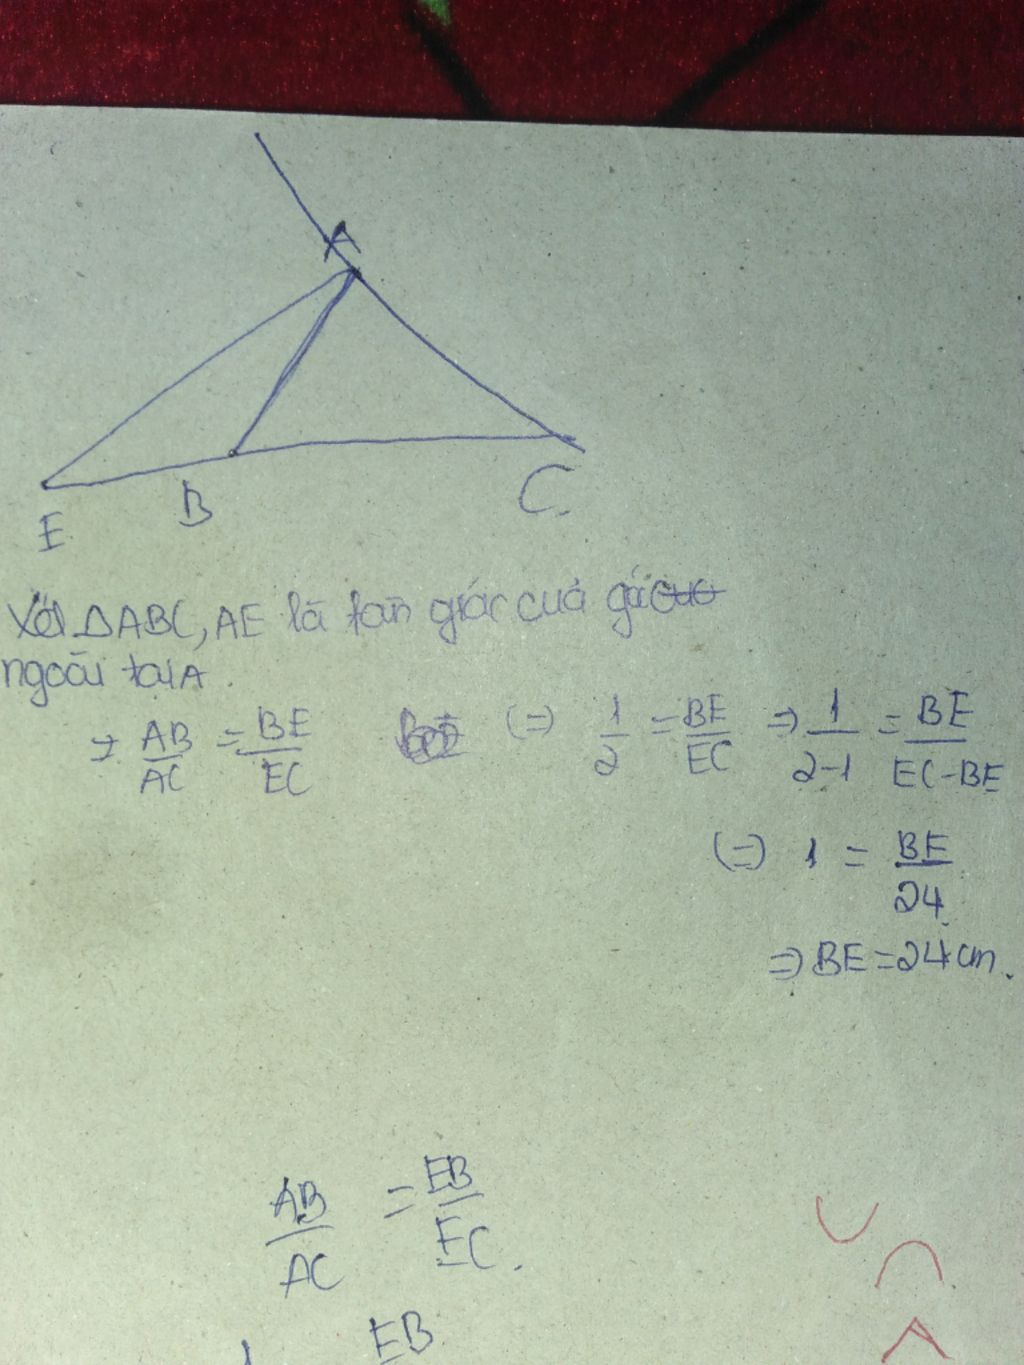 A
B
C
E
Xét ΔABC, AE là phân giác của góc
ngoài tại A.
→ AB/AC = BE/EC (=) 1/2 = BE/EC => 1/2-1 = BE/EC-BE
(=) 1 = BE/24
=> BE = 24cm.
AB/AC = EB/EC.
1 EB
∪
∩
A